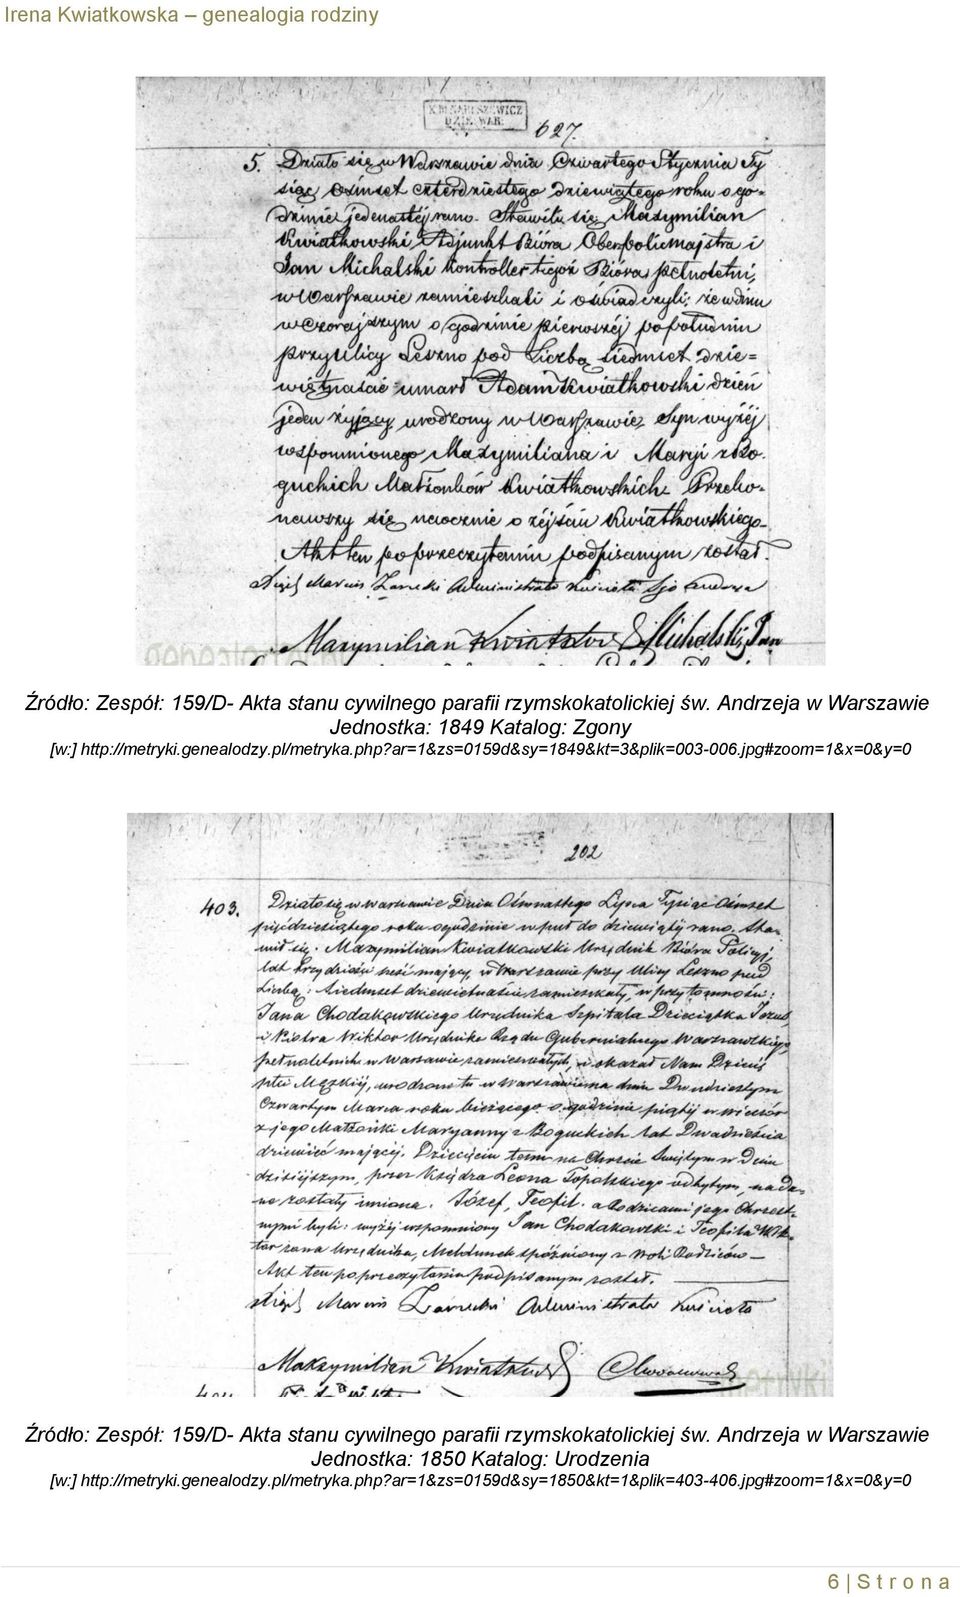 Irena Kwiatkowska – genealogia rodziny
627.
5. Działo się w Warszawie dnia Czwartego Stycznia Ty
siąc Osimset czterdziestego dziewiątego roku o go-
dzinie jedenastéj rano. Stawili się Maxymilian
Kwiatkowski Adjunkt Bióra Oberpolicmajstra i
Jan Michalski Kontroller tegoż Bióra, pełnoletni,
w Warszawie zamieszkali i oświadczyli; że w dniu
wczorajszym o godzinie pierwszéj popołudniu
przy Ulicy Leszno pod Liczbą siedmset dzie-
więtnaście umarł Adam Kwiatkowski dzień
jeden żyjący, urodzony w Warszawie, Syn wyżéj
wspomnionego Maxymiliana i Maryi z Bo-
guckich Małżonków Kwiatkowskich. Przeko-
nawszy się naocznie o zéjściu Kwiatkowskiego
Akt ten po przeczytaniu podpisanym został.
Xiądz Marcin Administrator Kościoła
Maxymilian Kwiatkowski Michalski Jan
genealodzy.pl
Źródło: Zespół: 159/D- Akta stanu cywilnego parafii rzymskokatolickiej św. Andrzeja w Warszawie
Jednostka: 1849 Katalog: Zgony
[w:] http://metryki.genealodzy.pl/metryka.php?ar=1&zs=0159d&sy=1849&kt=3&plik=003-006.jpg#zoom=1&x=0&y=0
202
403. Działo się w Warszawie Dnia Ośmnastego Lipca Tysiąc Ośmset
pięćdziesiątego roku o godzinie w pół do dziewiątéj rano. Sta-
wił się. Maxymilian Kwiatkowski Urzędnik Bióra Policyi,
lat trzydzieści sześć mający, w Warszawie przy Ulicy Leszno pod
Liczbą: siedmset dziewiętnaście zamieszkały, w przytomności:
Jana Chodakowskiego Urzędnika Szpitala Dzieciątka Jezus,
i Piotra Wiktor Urzędnika Rządu Gubernialnego Warszawskiego,
pełnoletnich w Warszawie zamieszkałych, i okazał Nam Dziecię
płci Męzkiéj, urodzone tu w Warszawie na dniu Dwudziestym
Czwartym Marca roku bieżącego o godzinie piątéj w wieczór
z jego Małżonki Maryanny z Boguckich lat Dwadzieścia
dziewięć mającéj. Dziecięciu temu na Chrzcie Świętym w Dniu
dzisiéjszym, przez Księdza Leona Topolskiego odbytym, nada-
ne zostały imiona. Józef, Teofil. a Rodzicami jego Chrzest-
nymi byli: wyżéj wspomniony Jan Chodakowski i Teofila Wik-
tor żona Urzędnika, Meldunek spóźniony z woli Rodziców
Akt ten po przeczytaniu podpisanym został.
Xiądz Marcin Administrator Kościoła
Maksymilian Kwiatkowski
metryki
Źródło: Zespół: 159/D- Akta stanu cywilnego parafii rzymskokatolickiej św. Andrzeja w Warszawie
Jednostka: 1850 Katalog: Urodzenia
[w:] http://metryki.genealodzy.pl/metryka.php?ar=1&zs=0159d&sy=1850&kt=1&plik=403-406.jpg#zoom=1&x=0&y=0
6 | Strona